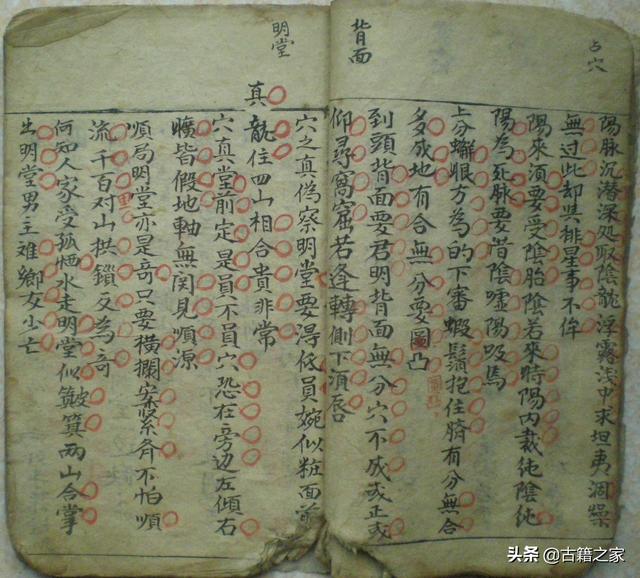 占穴
陽脉沉潜深処取陰龍浮露浅中求坦夷凋燥
無過此却與排星事不侔
陽來須要受陰胎陰若來時陽内裁純陰純
陽為死脉要借陰嘘陽吸焉
上分蠏眼方為的下審蝦鬚抱住臍有分無合
多成地有合無分要圖凸
背面
到頭背面要君明背面無分穴不成或正或
仰尋窩窟若逢轉側下須唇
明堂
穴之真偽察明堂要淂低員婉似粧面前
真龍住四山相合貴非常
穴真堂前定是員不員穴恐在旁边左傾右
曠皆假地軸無関見順源
順局明堂亦是奇只要橫攔案緊有不怕順
流千百对山拱鎖又為奇
何知人家受孤恓水走明堂似皷箕两山合掌
出明堂男主难鄉女少亡
头条 @古籍之家